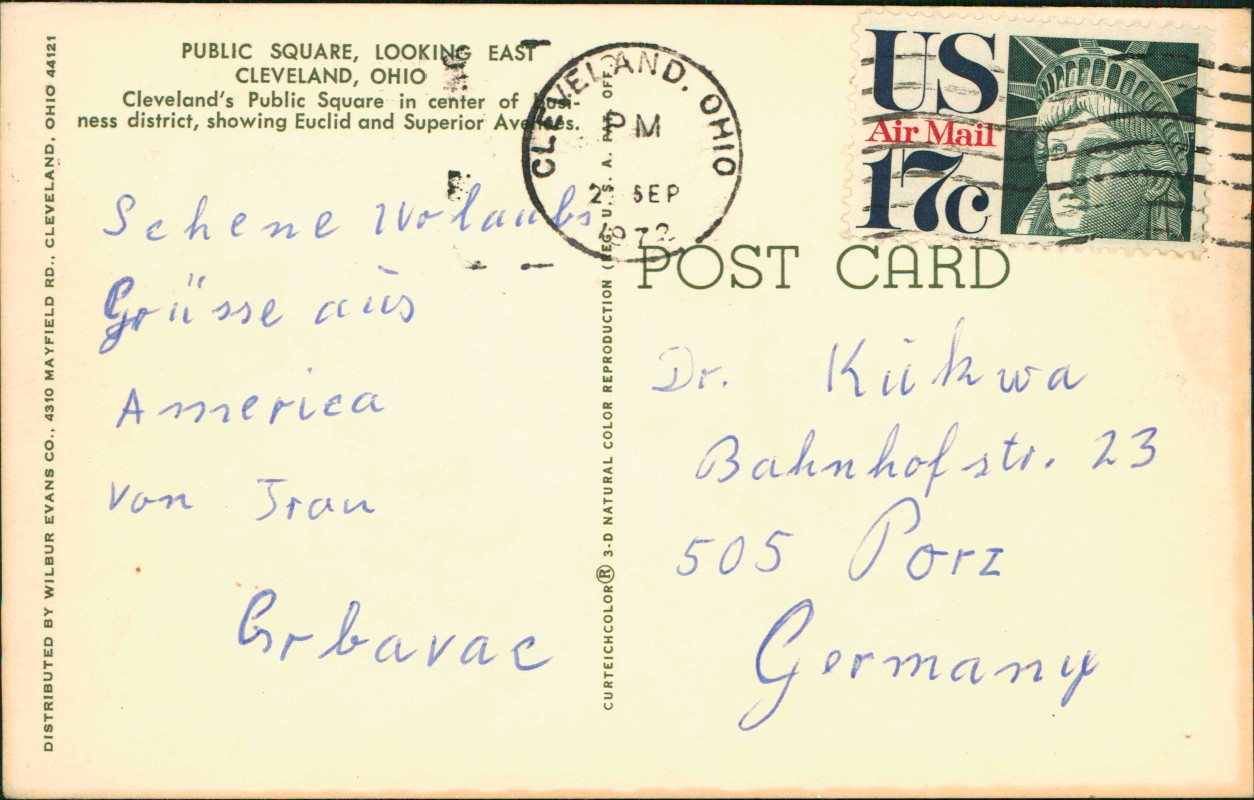 PUBLIC SQUARE, LOOKING EAST
CLEVELAND, OHIO
Cleveland's Public Square in center of busi-
ness district, showing Euclid and Superior Avenues.
Schene Urlaubs
Grüsse aus
America
von Fran
Grbavac
DISTRIBUTED BY WILBUR EVANS CO., 4310 MAYFIELD RD., CLEVELAND, OHIO 44121
CURTEICHCOLOR® 3-D NATURAL COLOR REPRODUCTION (REG. U.S.A. PAT. OFF.)
CLEVELAND, OHIO
PM
SEP
1972
US
Air Mail
17c
POST CARD
Dr. Kükwa
Bahnhofstr. 23
505 Porz
Germany